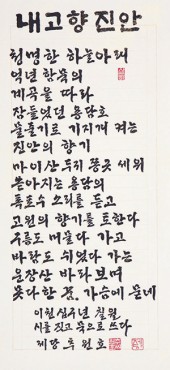 내고향 진안
청명한 하늘아래
억년 한숨의
계곡을 따라
잠들었던 용담호
물줄기로 기지개 켜는
진안의 향기
마이산 두귀 쫑긋 세워
쏟아지는 용담의
폭포수 소리를 듣고
고원의 향기를 토한다
구름도 머물다 가고
바람도 쉬였다 가는
운장산 바라보며
못다한 꿈 가슴에 묻네
이천십구년 칠월
시를 짓고 묵으로 쓰다
원호